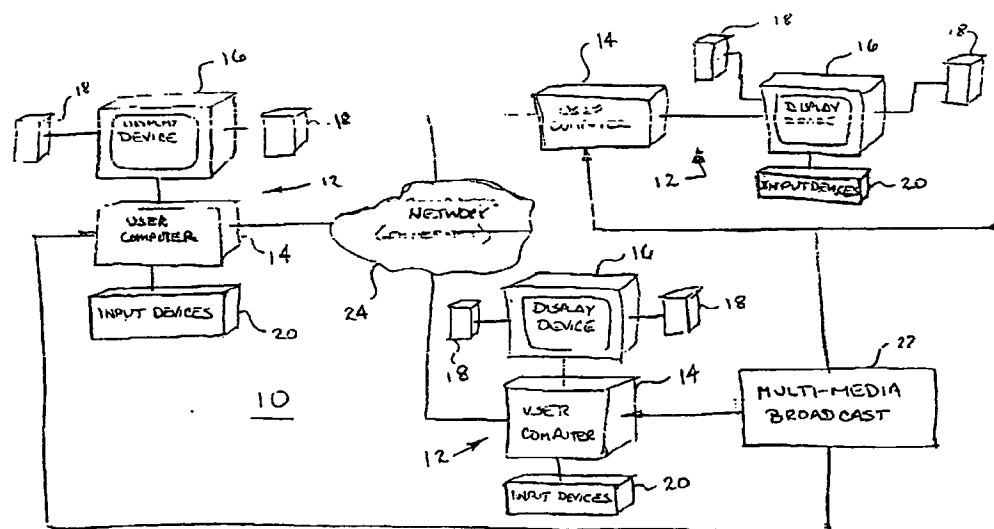 18
16
DEVICE
18
12
USER
COMPUTER
14
INPUT DEVICES
20
10
NETWORK
24
14
COMPUTER
12
18
16
18
DISPLAY
INPUT DEVICES
20
16
DISPLAY
DEVICE
18
18
14
USER
COMPUTER
12
INPUT DEVICES
20
22
MULTI-MEDIA
BROADCAST